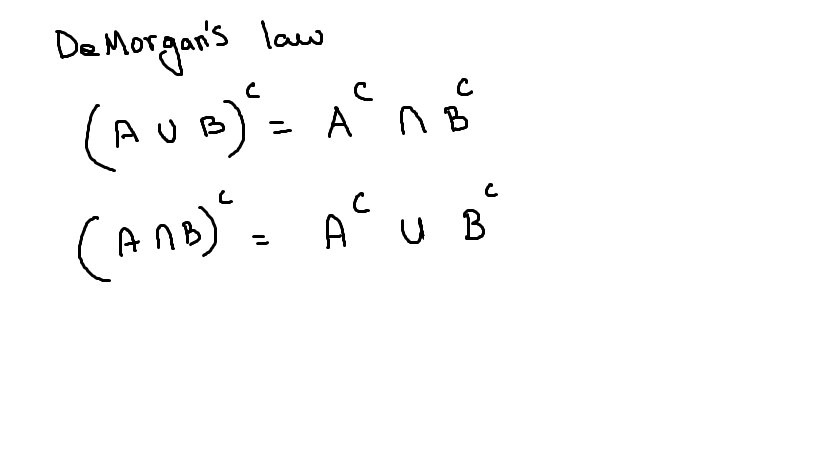 DeMorgan's law
(A ∪ B)ᶜ = Aᶜ ∩ Bᶜ
(A ∩ B)ᶜ = Aᶜ ∪ Bᶜ